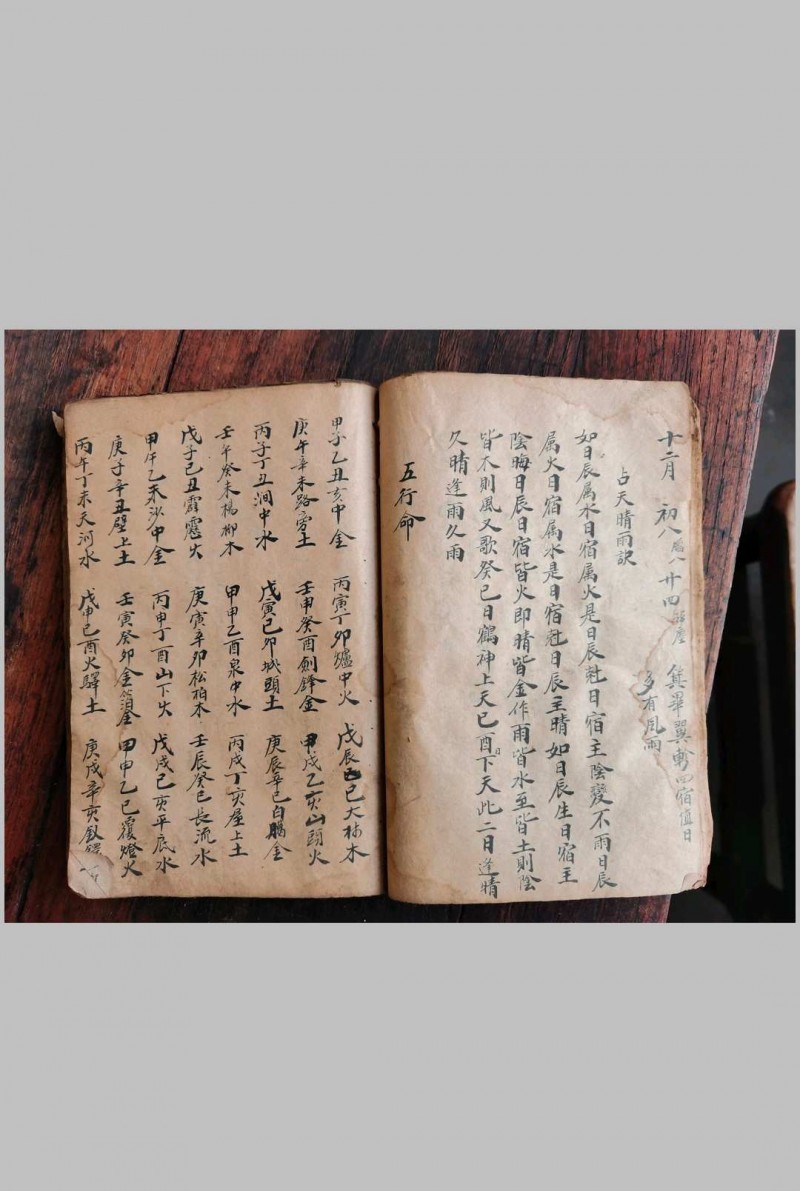 十二月 初八 廿四 箕畢翼軫四宿值日
多有風雨
占天晴雨訣
如日辰属水日宿属火是日辰尅日宿主陰變不雨日辰
属火日宿属水是日宿尅日辰主晴如日辰生日宿主
陰晦日辰日宿皆火即晴皆金作雨皆水至皆土則陰
皆木則風又歌癸巳日鶴神上天已酉日下天此二日逢晴
久晴逢雨久雨
五行命
甲子乙丑亥中金 丙寅丁卯爐中火 戊辰己巳大林木
庚午辛未路旁土 壬申癸酉劍鋒金 甲戌乙亥山頭火
丙子丁丑澗中水 戊寅己卯城頭土 庚辰辛巳白臈金
壬午癸未楊柳木 甲申乙酉泉中水 丙戌丁亥屋上土
戊子己丑霹靂火 庚寅辛卯松柏木 壬辰癸巳長流水
甲午乙未沙中金 丙申丁酉山下火 戊戌己亥平底水
庚子辛丑壁上土 壬寅癸卯金箔金 甲申乙巳覆燈火
丙午丁未天河水 戊申己酉火驛土 庚戌辛亥釵